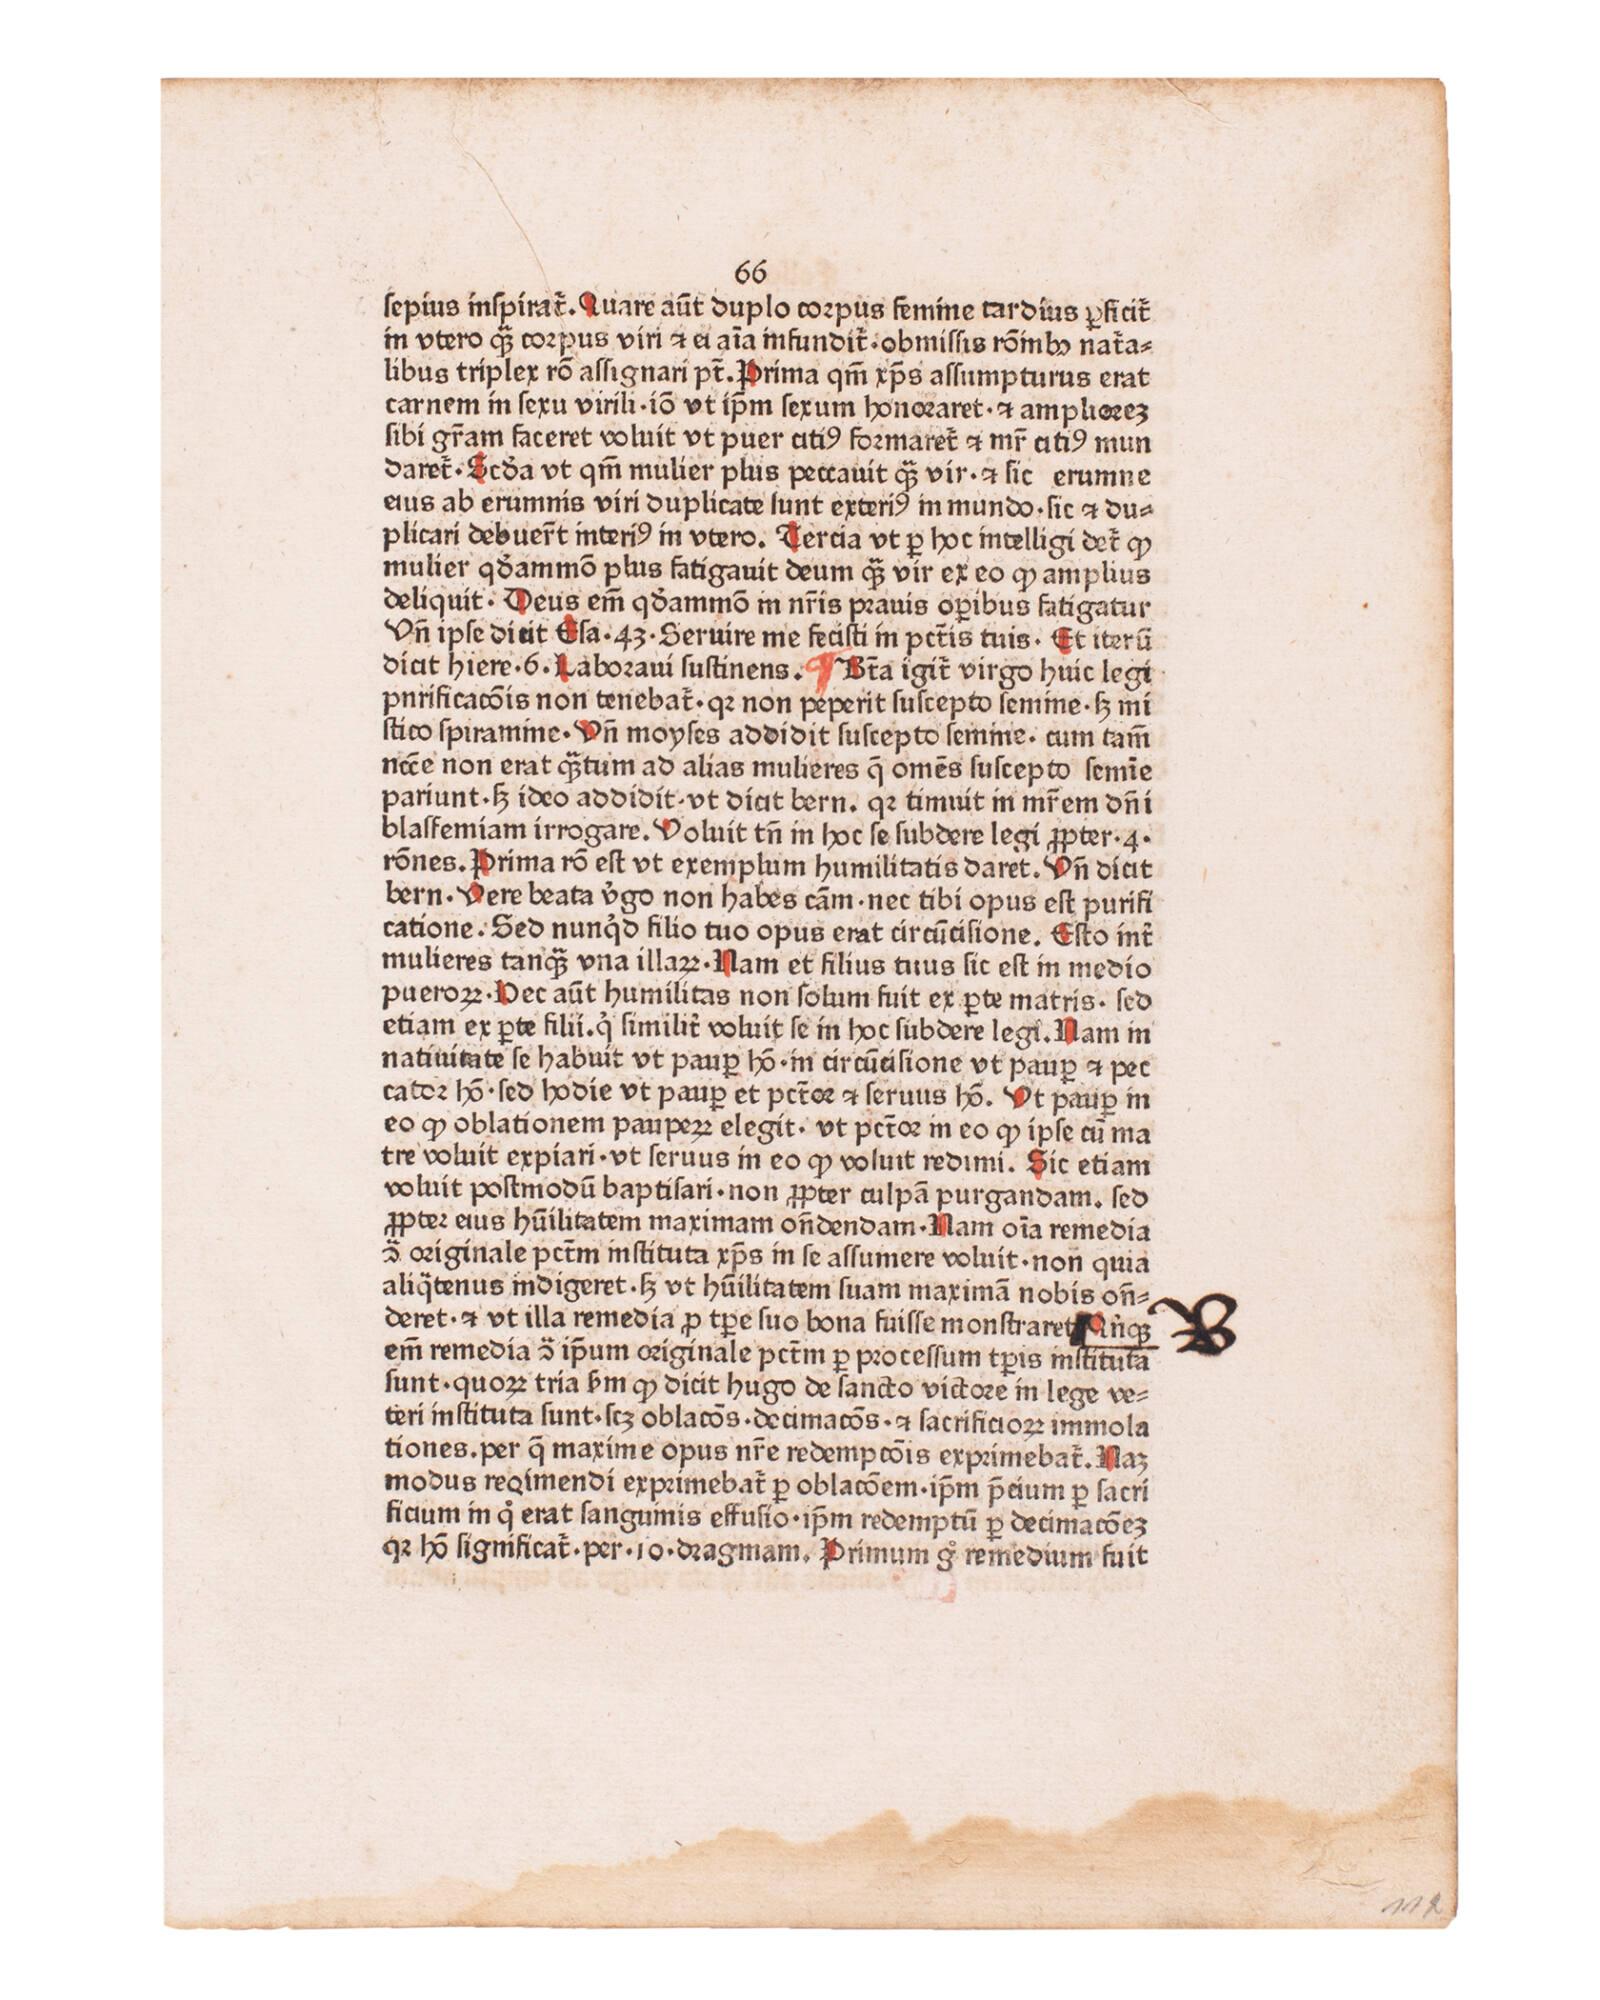 66
sepius inspirat᷑. Quare aūt duplo corpus femine tardius ꝑficit᷑
in vtero qᷓꝫ corpus viri ⁊ ei aīa infundit᷑· obmissis rōnibꝰ nat᷑a⸗
libus triplex rō assignari pt̄. Prima qm̄ xp̄s assumpturus erat
carnem in sexu virili· iō vt ip̄m sexum honoraret· ⁊ ampliorez
sibi gr̄am faceret voluit vt puer citiꝰ formaret᷑ ⁊ mr̄ citiꝰ mun
daret᷑· Scd̄a vt qm̄ mulier plus peccauit qᷓꝫ vir· ⁊ sic erumne
eius ab erumnis viri duplicate sunt exteriꝰ in mundo· sic ⁊ du⸗
plicari debuer̄t interiꝰ in vtero. Tercia vt ꝑ hoc intelligi det᷑ ꝙ
mulier qd̄ammō plus fatigauit deum qᷓꝫ vir ex eo ꝙ amplius
deliquit· Deus em̄ qd̄ammō in nr̄is prauis oꝑibus fatigatur
Vn̄ ipse dicit Esa· 43· Seruire me fecisti in pct̄is tuis· Et iterū
dicit hiere· 6· Laboraui sustinens. ¶ Bt̄a igit᷑ virgo huic legi
pnrificacōis non tenebat᷑· qꝛ non peperit suscepto semine· sꝫ mi
stico spiramine· Vn̄ moyses addidit suscepto semine· cum tam̄
ncc̄e non erat qᷓꝫtum ad alias mulieres q̄ omēs suscepto semīe
pariunt· sꝫ ideo addidit· vt dicit bern. qꝛ timuit in mr̄em dn̄i
blasfemiam irrogare. Voluit tn̄ in hoc se subdere legi ꝓpter· 4·
rōnes. Prima rō est vt exemplum humilitatis daret. Vn̄ dicit
bern· Vere beata v̓go non habes cām· nec tibi opus est purifi
catione· Sed nunqͥd filio tuo opus erat circūcisione. Esto int᷑
mulieres tanqᷓꝫ vna illaꝝ· Nam et filius tuus sic est in medio
pueroꝝ· Nec aūt humilitas non solum fuit ex ꝑte matris· sed
etiam ex ꝑte filii. qͥ similit᷑ voluit se in hoc subdere legi. Nam in
natiuitate se habuit vt pauꝑ hō· in circūcisione vt pauꝑ ⁊ pec
cator hō· sed hodie vt pauꝑ et pct̄or ⁊ seruus hō. Vt pauꝑ in
eo ꝙ oblationem paupeꝝ elegit· vt pct̄or in eo ꝙ ipse cū ma
tre voluit expiari· vt seruus in eo ꝙ voluit redimi. Sic etiam
voluit postmodū baptisari· non ꝓpter culpā purgandam. sed
ꝓpter eius hūilitatem maximam on̄dendam· Nam oīa remedia
ↄ̄ originale pct̄m instituta xp̄s in se assumere voluit· non quia
aliqᷓtenus indigeret· sꝫ vt hūilitatem suam maximā nobis on̄⸗
deret· ⁊ vt illa remedia ꝓ tꝑe suo bona fuisse monstraret Qn̄qꝫ B
em̄ remedia ↄ̄ ip̄um originale pct̄m ꝑ processum tꝑis instituta
sunt· quoꝝ tria s̄m ꝙ dicit hugo de sancto victore in lege ve⸗
teri instituta sunt· scꝫ oblacōs· decimacōs· ⁊ sacrificioꝝ immola
tiones. per q̄ maxime opus nr̄e redempcōis exprimebat᷑. Naꝫ
modus reqimendi exprimebat᷑ ꝑ oblacōem· ip̄m p̄cium ꝑ sacri
ficium in qͦ erat sanguinis effusio· ip̄m redemptū ꝑ decimacōeꝫ
qꝛ hō significat᷑· per· 10· dragmam. Primum gͦ remedium fuit
112